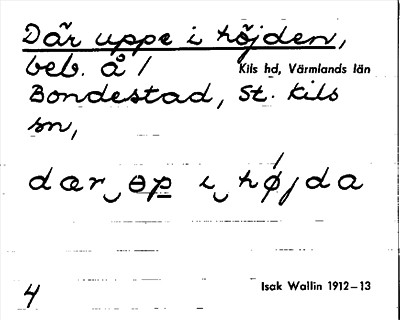 Där uppe i höjden,
beb. å /
Kils hd, Värmlands län
Bondestad, St. Kils
sn,
dær‿ɵp i‿hǿjda
4
Isak Wallin 1912–13